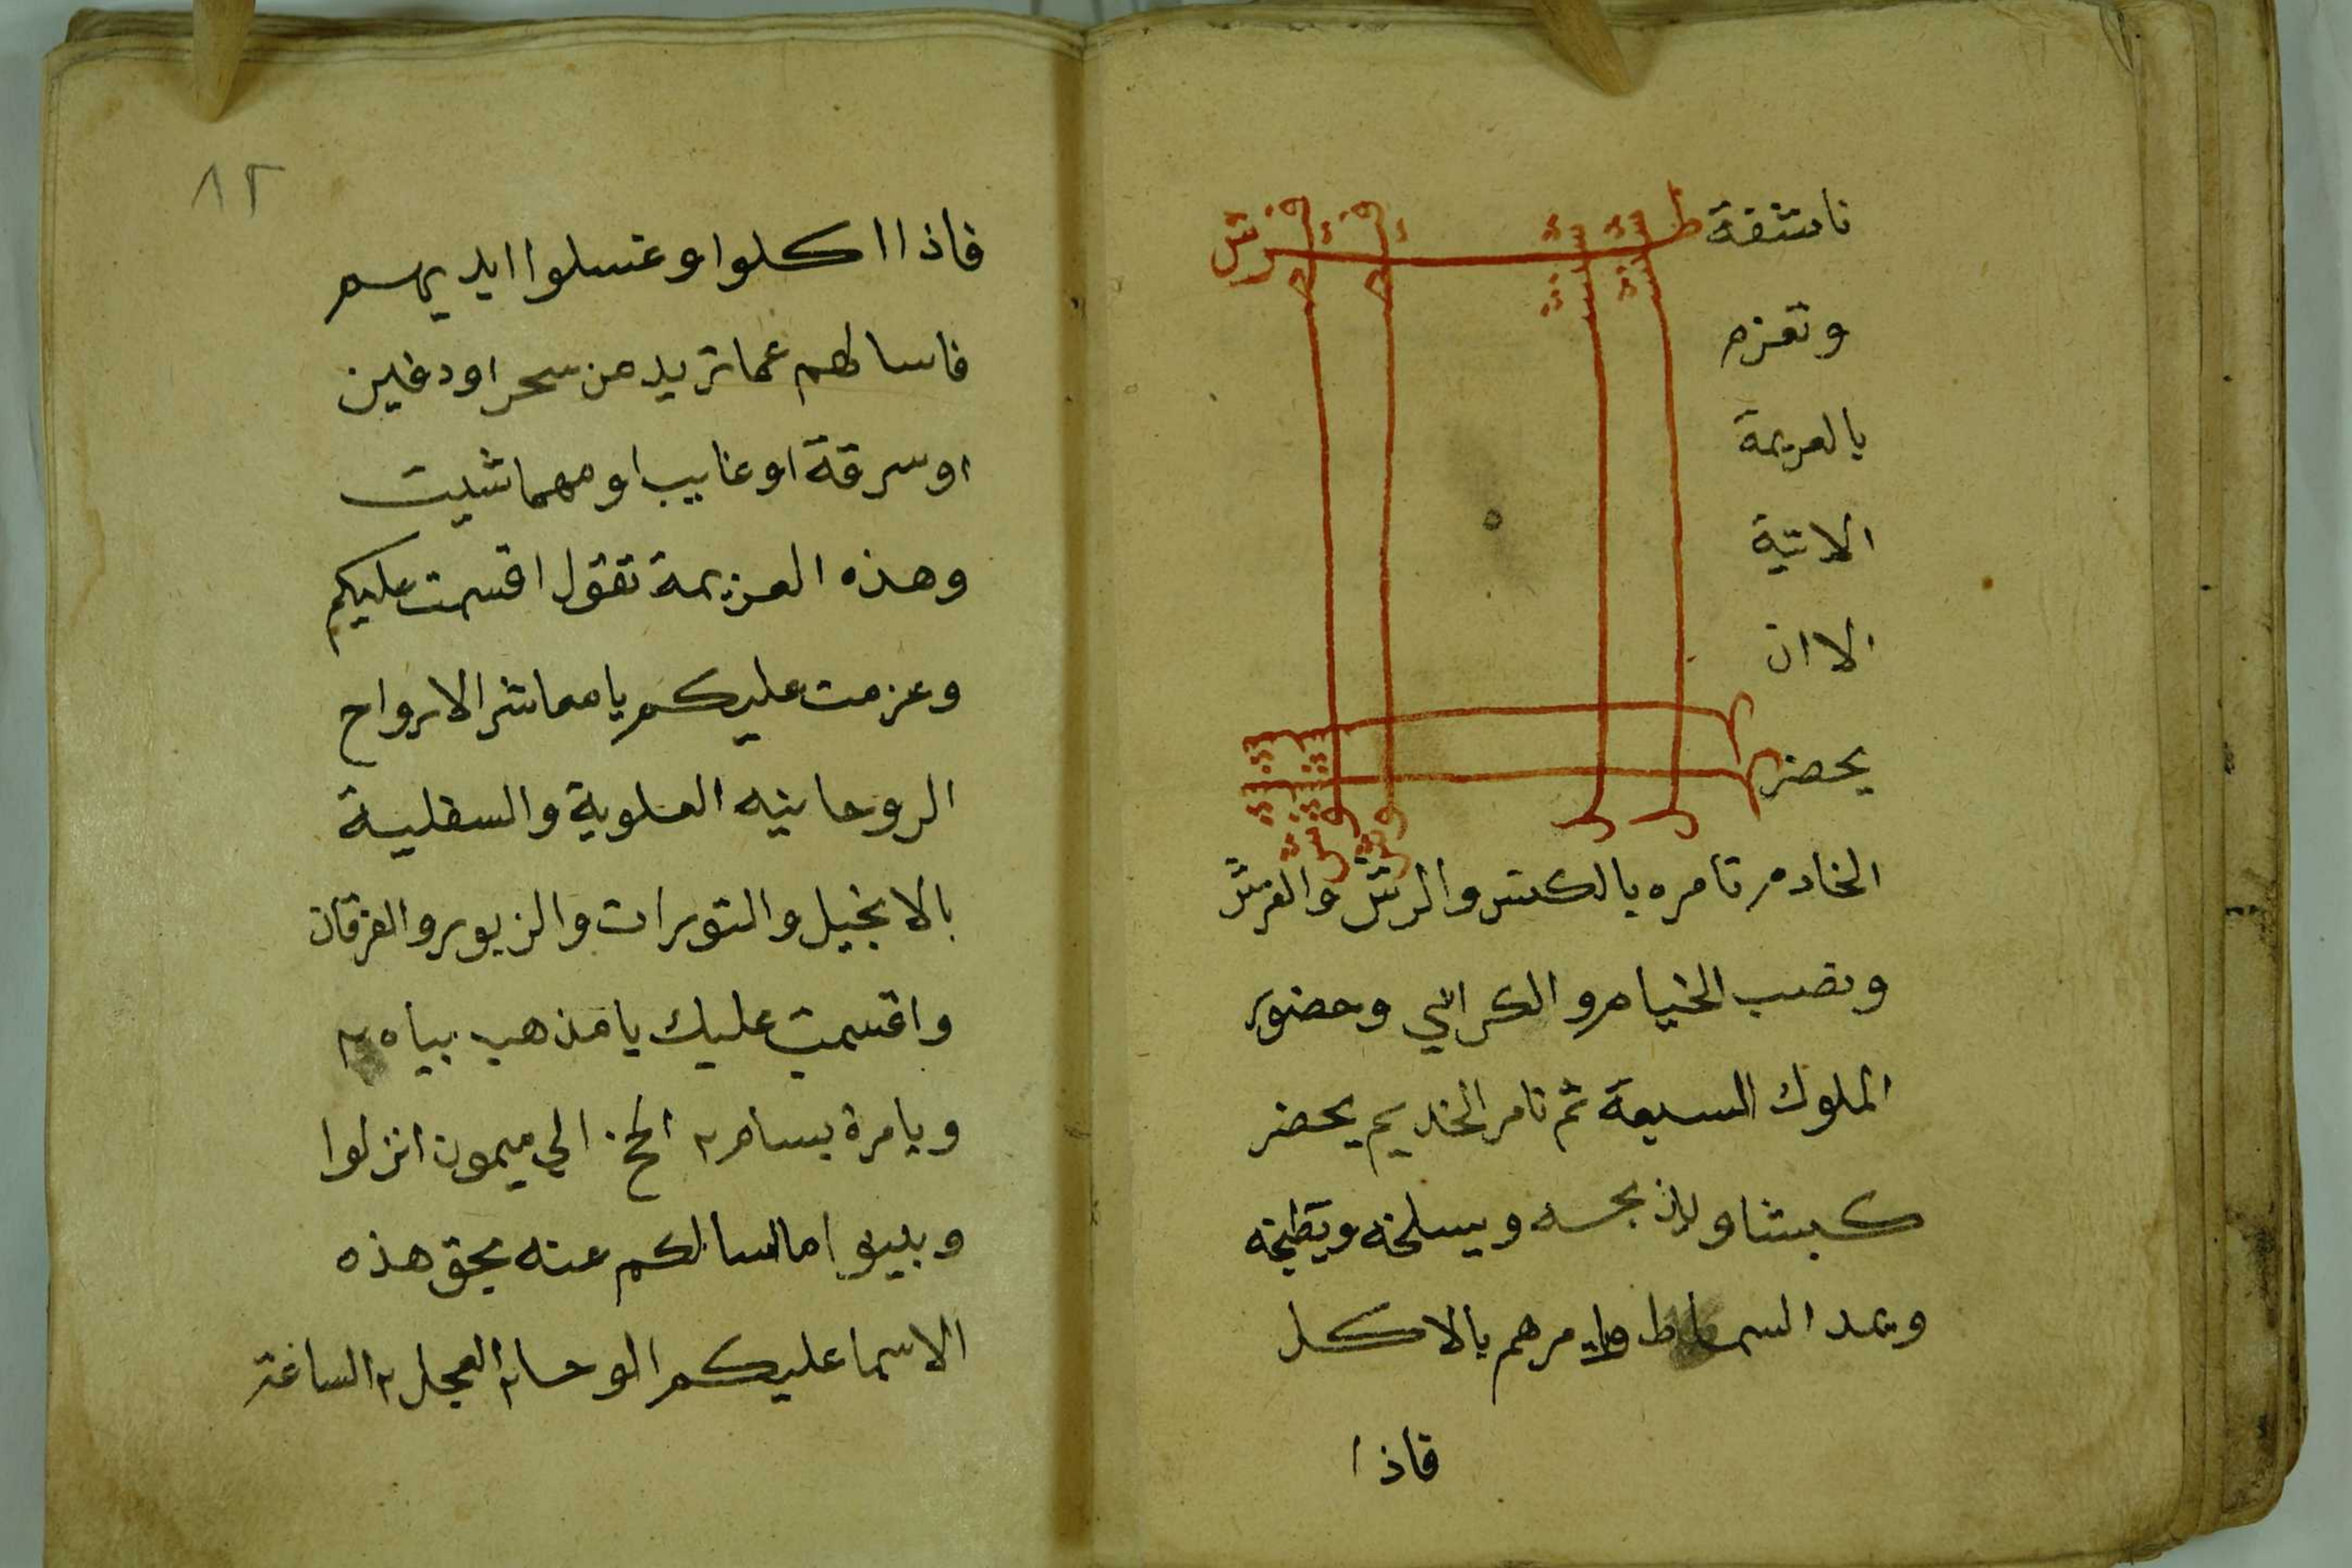 ناشفة
وتعزم
بالعزيمة
الاتية
الا ان
يحضر
الخادم تامره بالكنس والرش والفرش
ونصب الخيام والكراسي وحضور
الملوك السبعة ثم تامر الخديم يحضر
كبشا ويذبحه ويسلخه ويطبخه
ويمد السماط ويامرهم بالاكل
فاذا
٨٢
فاذا اكلوا وغسلوا ايديهم
فاسالهم عما تريد من سحر او دفين
او سرقة او غايب او مهما شيت
وهذه العزيمة تقول اقسمت عليكم
وعزمت عليكم يا معاشر الارواح
الروحانيه العلوية والسفلية
بالانجيل والتورات والزبور والفرقان
واقسمت عليك يا مذهب بياه ٢
ويا مرة بسام ٢ الخ الي ميمون انزلوا
وبينوا ما اسالكم عنه بحق هذه
الاسما عليكم الوحا ٢ العجل ٢ الساعة